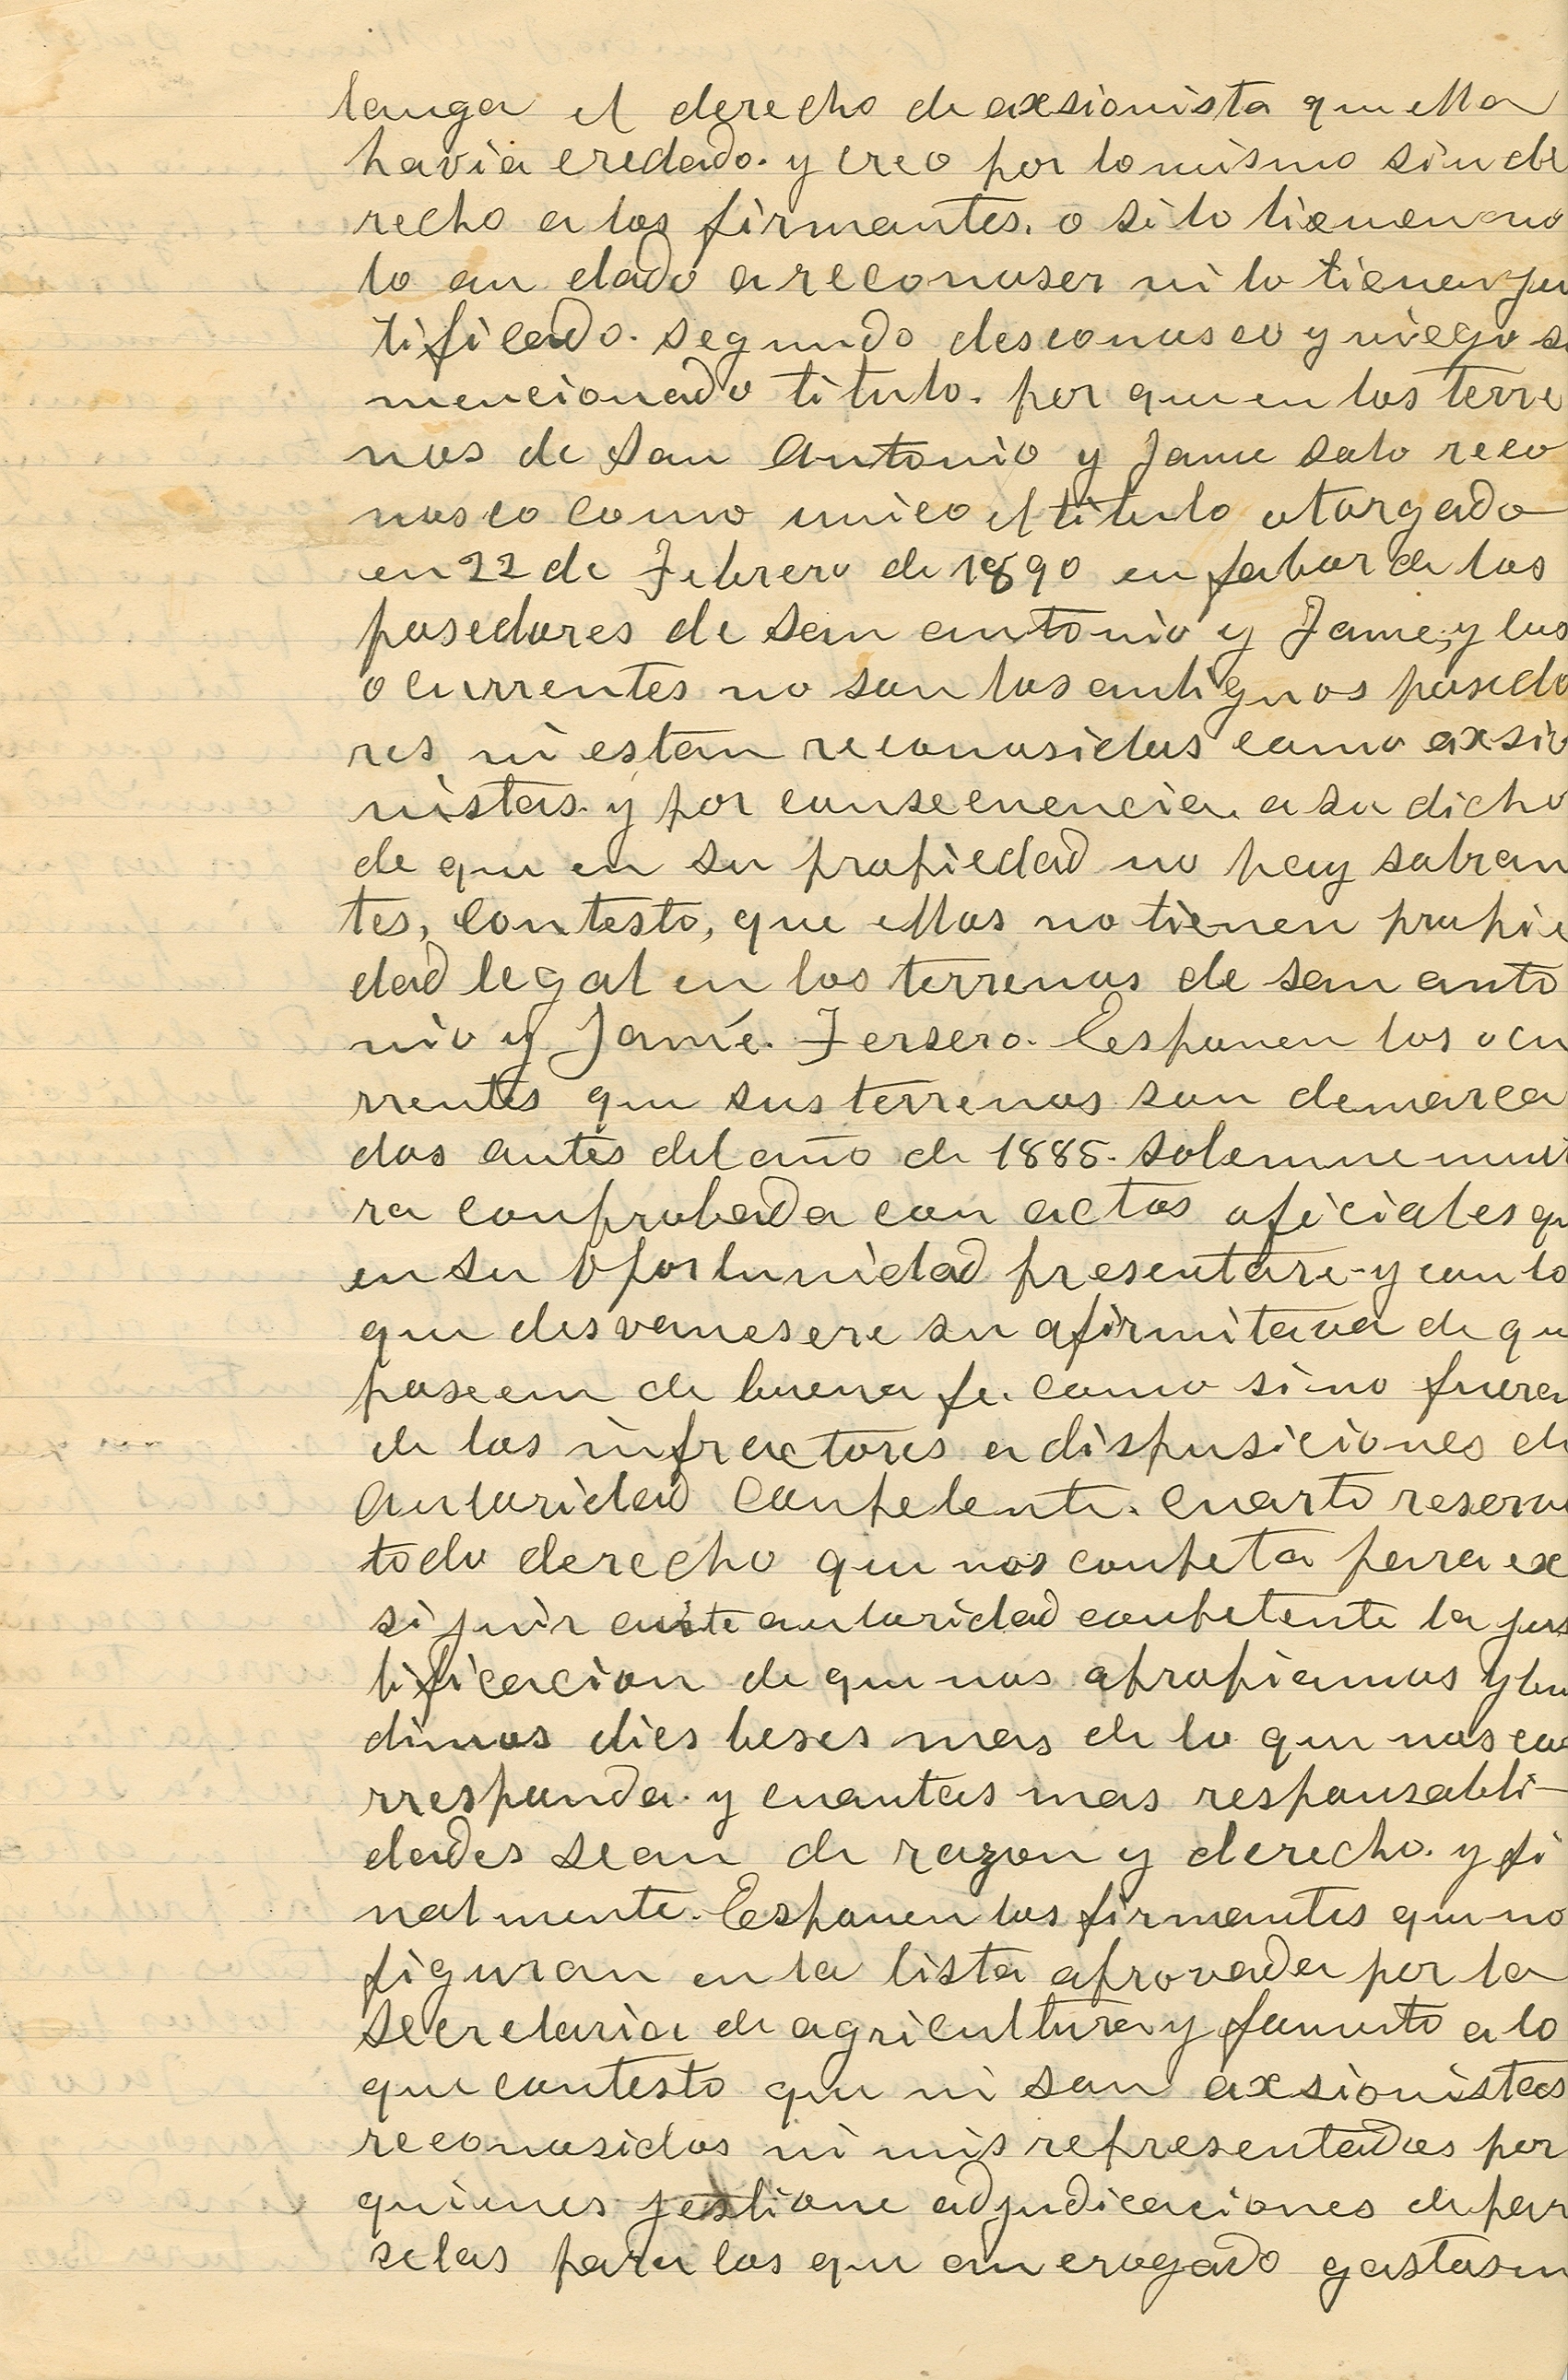 tenga el derecho de axsionista que ella
havia eredado. y creo por lo mismo sin de
recho a los firmantes. o si lo tienen no
lo an dado a reconoser ni lo tienen jus
tificado. segundo desconosco y niego su
mencionado titulo. por que en los terre
nos de San Antonio y Jame solo reco
nosco como unico el titulo otorgado
en 22 de Febrero de 1890 en fabor de los
posedores de san antonio y Jame, y los
ocurrentes no son los antiguos posedo
res ni estan reconosidos como axsio
nistas. y por consecuencia a su dicho
de que en su propiedad no hay sobran
tes, Contesto, que ellos no tienen propie
dad legal en los terrenos de san anto
nio y Jamé. Tersero. Esponen los ocu
rrentes que sus terrenos son demarca
dos antes del año de 1885. solemne menti
ra conprobada con actos oficiales qu
en su Oportunidad presentare y con lo
que desvanesere su afirmitava de qu
poseem de buena fe. como si no fueran
de los infractores a dispusiciones de
Autoridad Conpetente. cuarto reservo
todo derecho que nos conpeta para ex
sijuir ante autoridad conpetente la jus
tificacion de que nos apropiamos y ben
dimos dies beses mas de lo que nos co
rresponda. y cuantas mas responsabli-
dades sean de razon y derecho. y fi
nalmente. Esponen los firmantes que no
figuran en la lista aprovada por la
Secretaria de agricultura y fomento a lo
que contesto que ni son axsionistas
reconosidos ni mis representados por
quienes jestione adjudicaciones de par
selas para los que an erogado gastos en